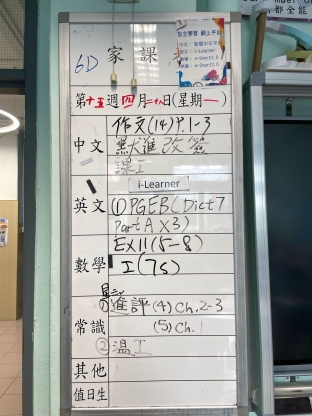 6D
家課
自主學習 網上平台
第十五週四月二十八日(星期一)
作文(14)P.1-3
中文
默進改簽
課工
i-Learner
英文
①PGEB(Dict 7
Part A X3)
EX11(5-8)
數學
工(7s)
星二
①進評(4)Ch.2-3
常識
(5)Ch.1
②温工
其他
值日生